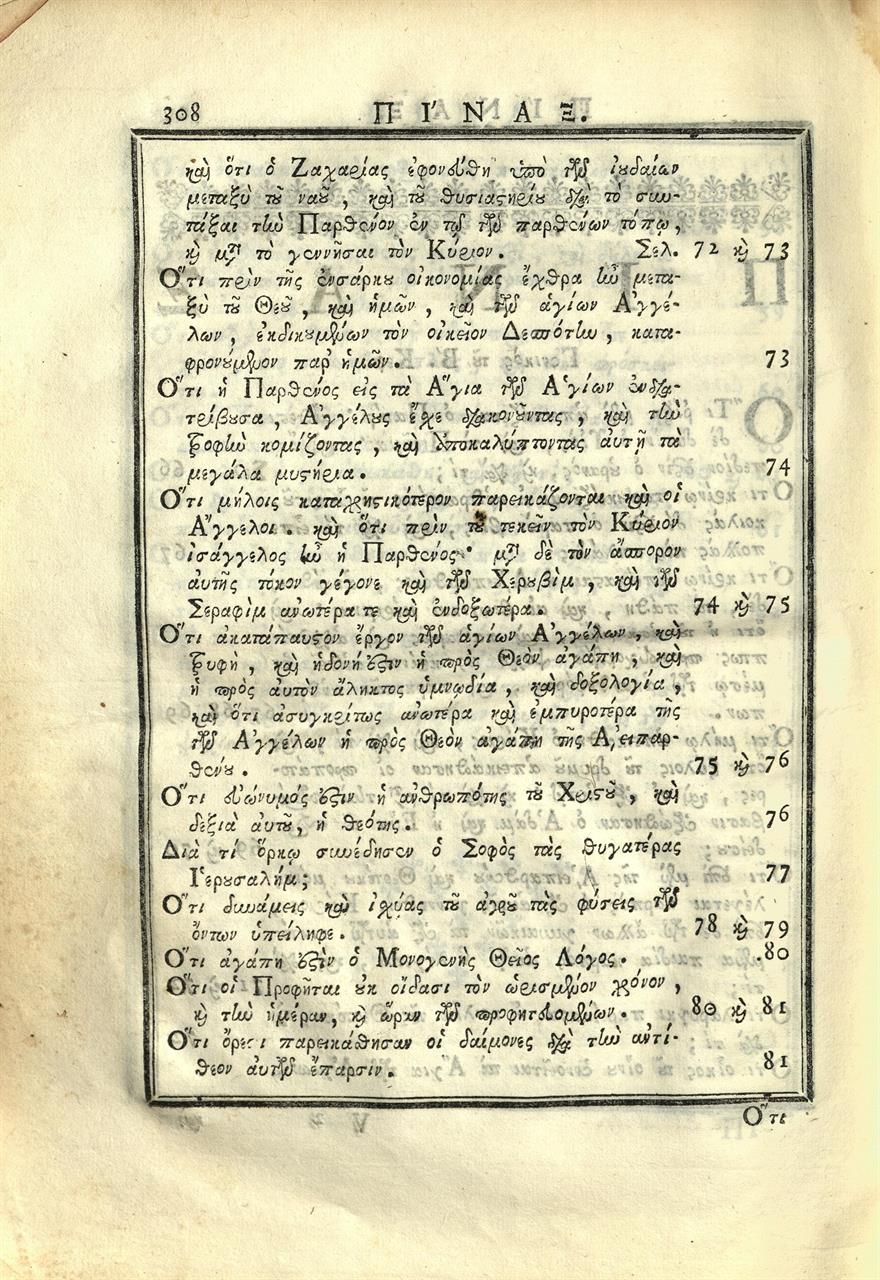 308 ΠΙ´ΝΑΞ.
καὶ ὅτι ὁ Ζαχαρίας ἐφονεύθη ὑπὸ τῶν ἰυδαίων
μεταξὺ τοῦ ναοῦ, καὶ τοῦ θυσιαστηρίου διὰ τὸ συν-
τάξαι τὴν Παρθένον ἐν τῷ τῶν παρθένων τόπῳ,
κὶ μετὰ τὸ γεννῆσαι τὸν Κύριον. Σελ. 72 κὶ 73
Ὅτι πρὶν τῆς ἐνσάρκου οἰκονομίας ἔχθρα ἦν μετα-
ξὺ τοῦ Θεοῦ, καὶ ἡμῶν, καὶ τῶν ἁγίων Ἀγγέ-
λων, ἐκδικουμένων τὸν οἰκεῖον Δεσπότην, κατα-
φρονούμενον παρ' ἡμῶν. 73
Ὅτι ἡ Παρθένος εἰς τὰ Ἅγια τῶν Ἁγίων ἐνδια-
τρίβουσα, Ἀγγέλους ἔχε διακονοῦντας, καὶ τὴν
τροφὴν κομίζοντας, καὶ ἀποκαλύπτοντας αὐτῇ τὰ
μεγάλα μυστήρια. 74
Ὅτι μήλοις καταχρηστικότερον παρεικάζονται καὶ οἱ
Ἄγγελοι. καὶ ὅτι πρὶν τοῦ τεκεῖν τὸν Κύριον
ἰσάγγελος ἦν ἡ Παρθένος· μετὰ δὲ τὸν ἄσπορον
αὐτῆς τόκον γέγονε καὶ τῶν Χερυβὶμ, καὶ τῶν
Σεραφὶμ ἀνωτέρα τε καὶ ἐνδοξωτέρα. 74 κὶ 75
Ὅτι ἀκατάπαυστον ἔργον τῶν ἁγίων Ἀγγέλων, καὶ
τρυφὴ, καὶ ἡδονή ἐστιν ἡ πρὸς Θεὸν ἀγάπη, καὶ
ἡ πρὸς αὐτὸν ἄληκτος ὑμνῳδία, καὶ δοξολογία,
καὶ ὅτι ἀσυγκρίτως ἀνωτέρα καὶ ἐμπυροτέρα τῆς
τῶν Ἀγγέλων ἡ πρὸς Θεὸν ἀγάπη τῆς Ἀειπαρ-
θένου. 75 κὶ 76
Ὅτι εὐώνυμός ἐστιν ἡ ἀνθρωπότης τοῦ Χριστοῦ, καὶ
δεξιὰ αὐτοῦ, ἡ θεότης. 76
Διὰ τί ὅρκῳ συνέδησεν ὁ Σοφὸς τὰς θυγατέρας
Ἱερουσαλήμ; 77
Ὅτι δυνάμεις καὶ ἰχύας τοῦ ἀγροῦ τὰς φύσεις τῶν
ὄντων ὑπείληφε. 78 κὶ 79
Ὅτι ἀγάπη ἐστὶν ὁ Μονογενὴς Θεῖος Λόγος. 80
Ὅτι οἱ Προφῆται οὐκ οἴδασι τὸν ὡρισμένον χρόνον,
κὶ τὴν ἡμέραν, κὶ ὥραν τῶν προφητευομένων. 80 κὶ 81
Ὅτι ὄρεσι παρεικάθησαν οἱ δαίμονες διὰ τὴν ἀντί-
θεον αὐτῶν ἔπαρσιν. 81
Ὅτι